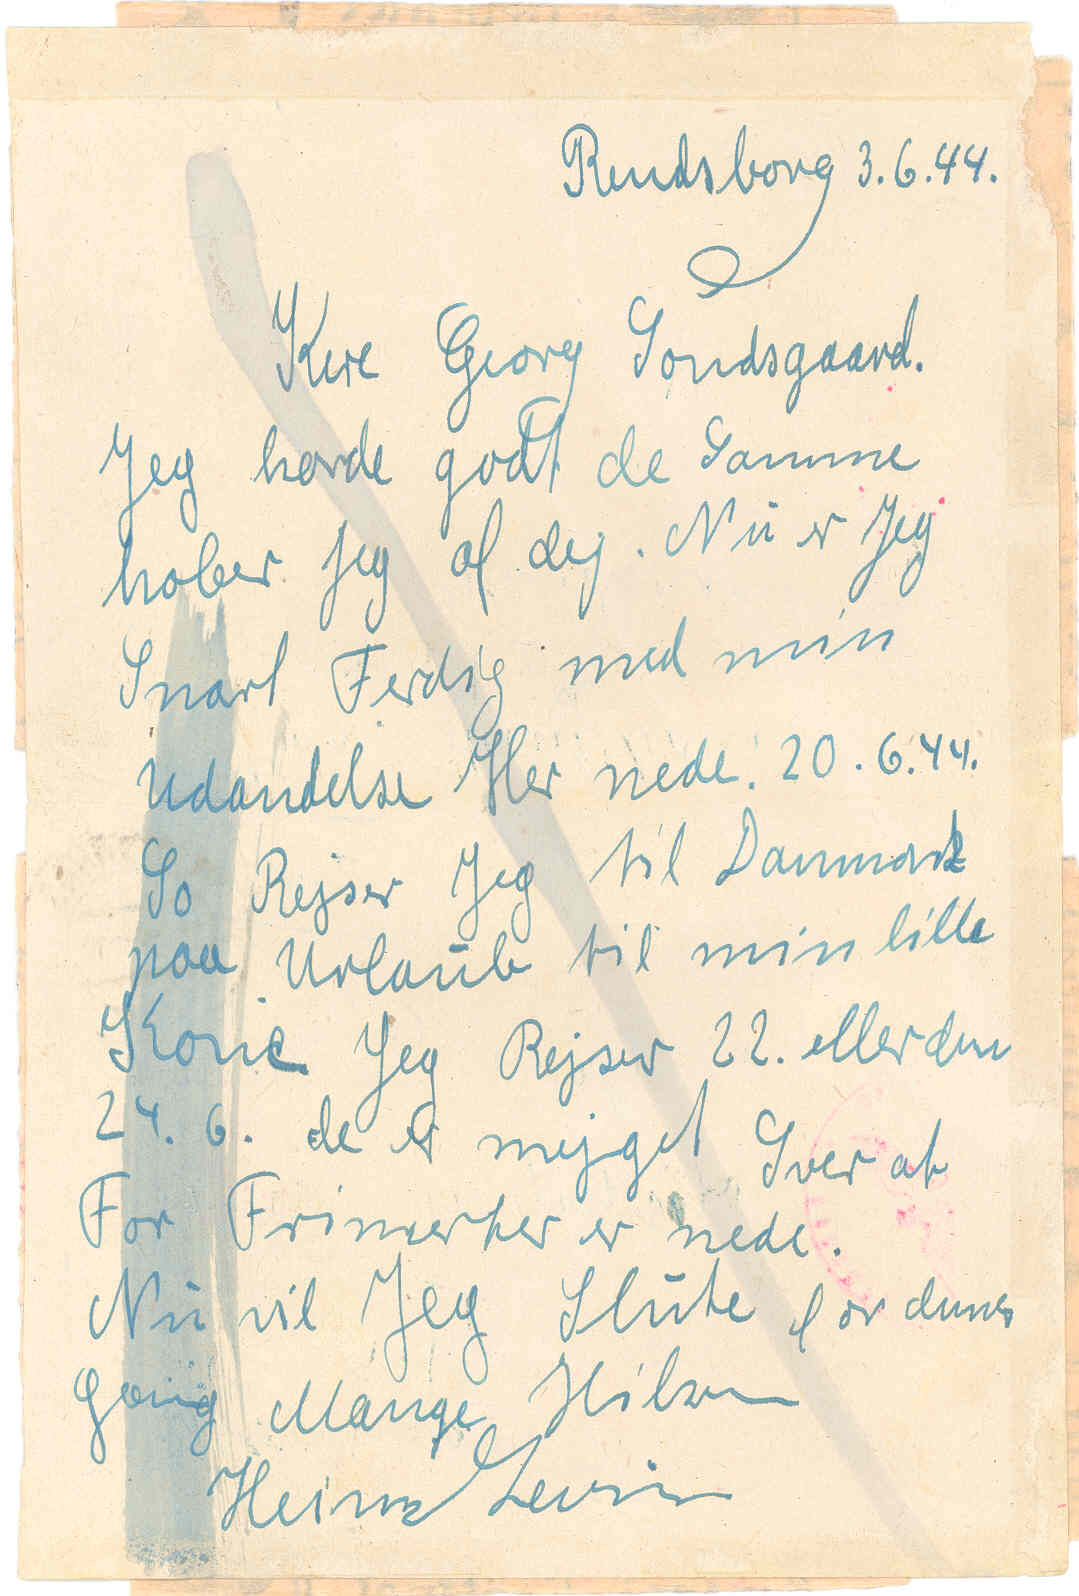 Rendsborg 3.6.44.
Kere Georg Sondsgaard.
Jeg horde godt de Samme
hober Jeg af dej. Nu er Jeg
Snart Ferdig med min
Udandelse Her nede. 20.6.44.
So Rejser Jeg til Danmark
paa Urlaub til min lille
Kone Jeg Rejser 22. eller den
24. 6. de er mejget Sver at
For Frimerker er nede.
Nu vil Jeg Slute for denes
Gang Mange Hilsen
Heinz Levin